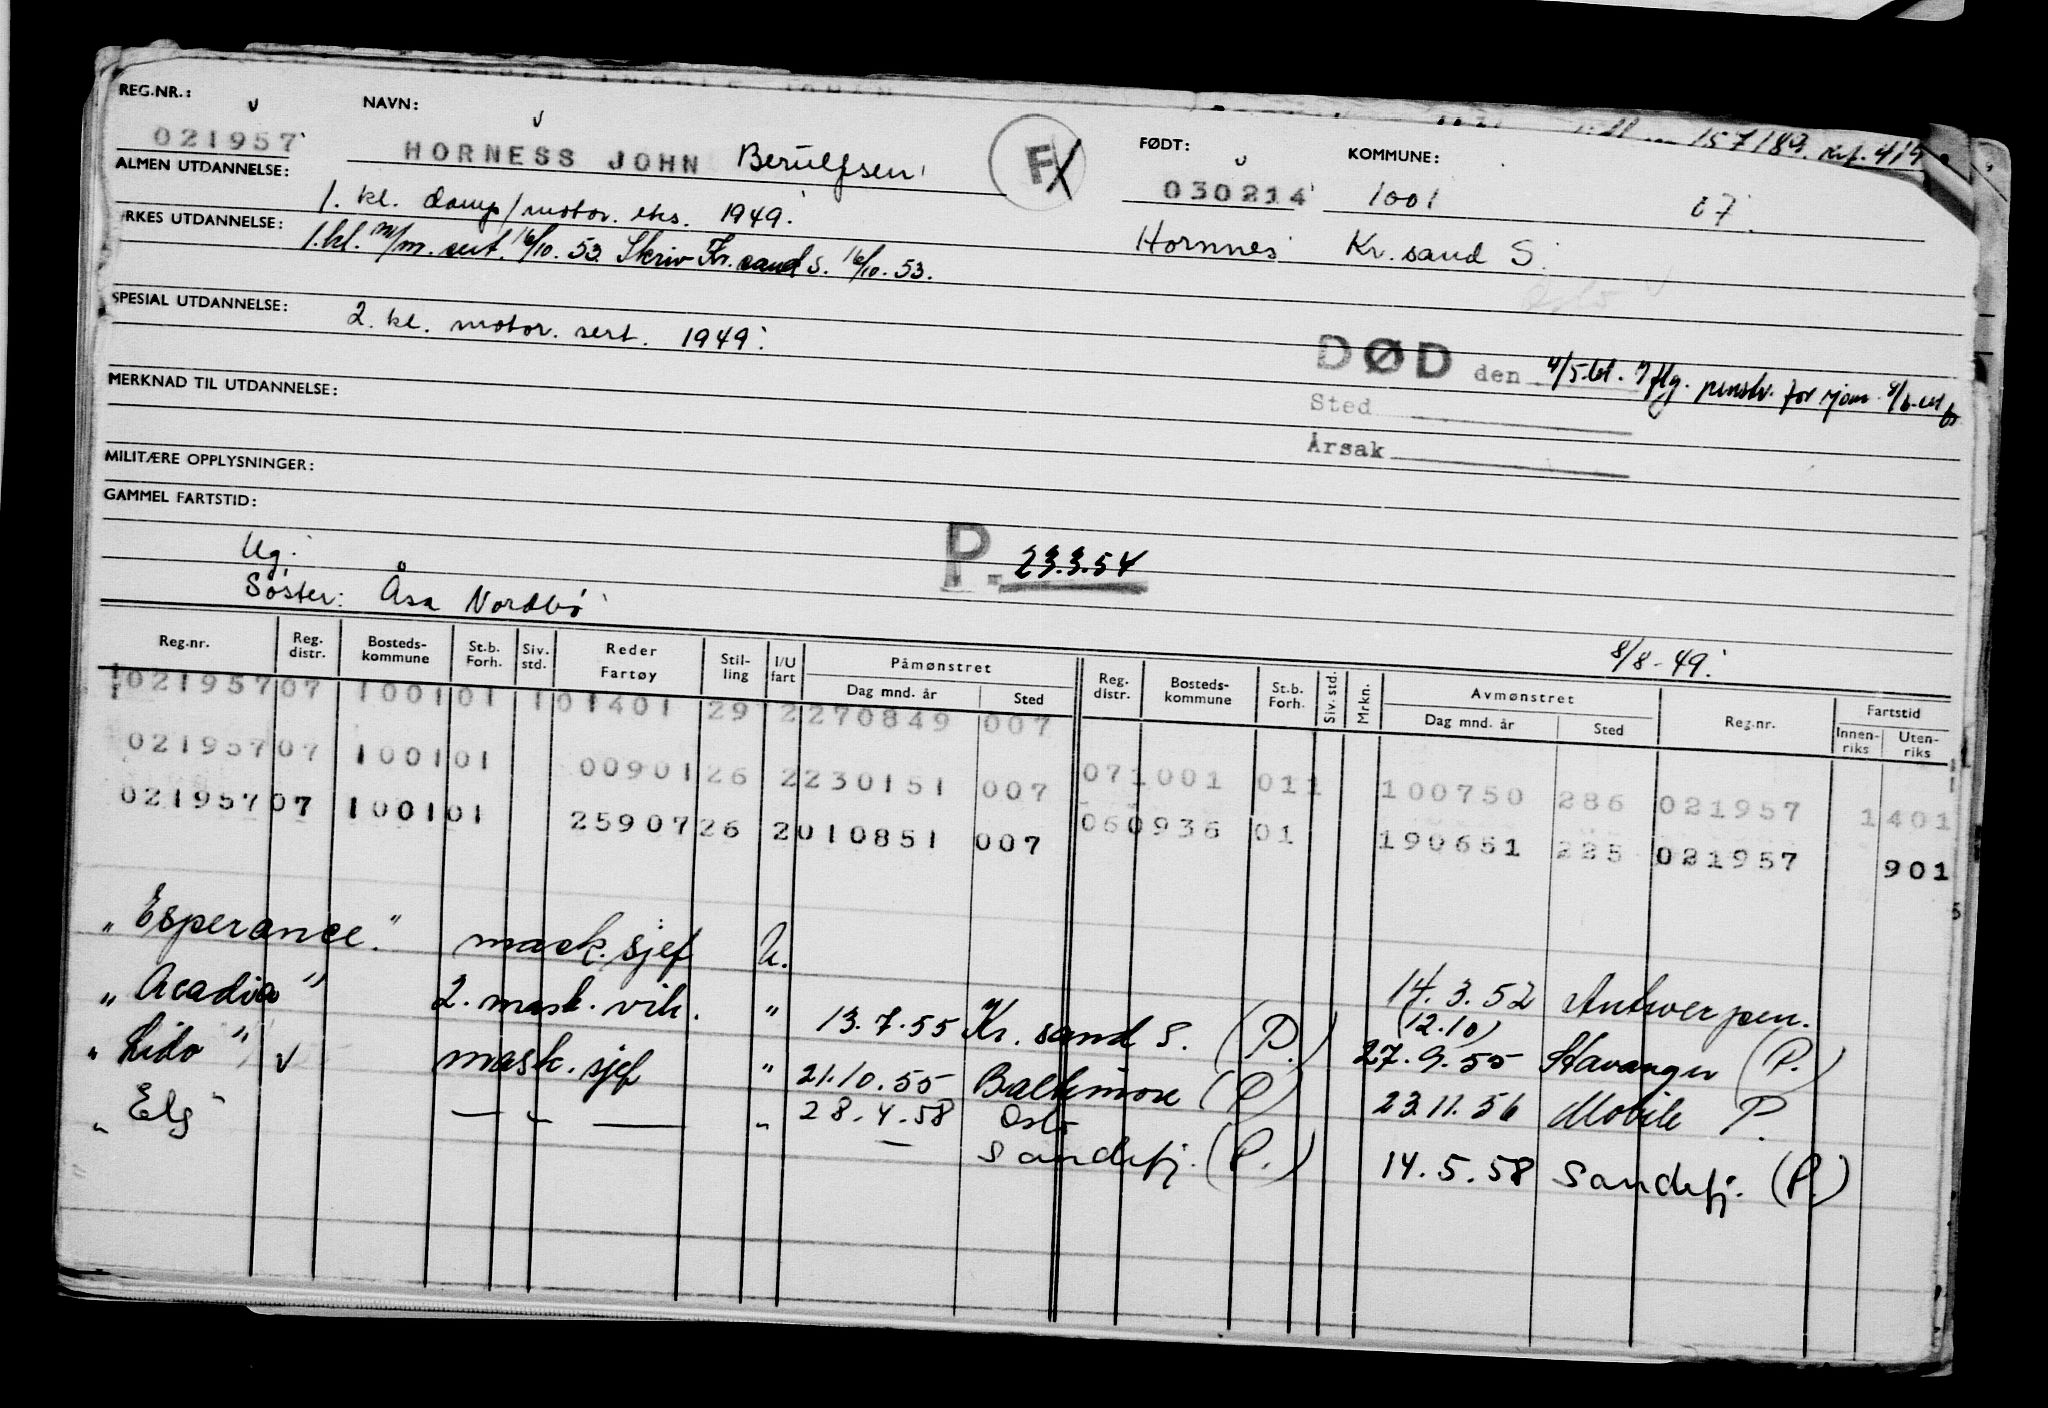 157183. Ref. 419
REG.NR.: NAVN: FØDT: KOMMUNE:
021957 HORNESS JOHN Berulfsen F 030214 1001 07.
ALMEN UTDANNELSE: 1. kl. damp/motor. eks. 1949. Hornnes Kr. sand S.
YRKES UTDANNELSE: 1.kl. m/m. sert. 16/10. 53. Skriv Kr. sand S. 16/10. 53.
Oslo
SPESIAL UTDANNELSE: 2. kl. motor. sert. 1949.
DØD den 4/5.61. iflg. penstr. for sjøm. 8/6-61
MERKNAD TIL UTDANNELSE:
Sted
Årsak
MILITÆRE OPPLYSNINGER:
GAMMEL FARTSTID:
Ug. P. 23.3.54
Søster: Åsa Nordbø
8/8-49.
Reg.nr. Reg. distr. Bosteds-kommune St.b. Forh. Siv. std. Reder Fartøy Stil-ling I/U fart Påmønstret Dag mnd. år Sted Reg. distr. Bosteds-kommune St.b. Forh. Siv. std. Mrkn. Avmønstret Dag mnd. år Sted Reg.nr. Fartstid Innen-riks Uten-riks
021957 07 1001 01 1 01401 29 2 270849 007
021957 07 1001 01 00901 26 2 230151 007 07 1001 01 1 100750 286 021957 1 401
021957 07 1001 01 25907 26 2 010851 007 06 0936 01 190651 225 021957 901
"Esperance." mask. sjef U. 14.3.52 Antwerpen.
"Acadia" 2. mask. vik. " 13.7.55 Kr. sand S. (P.) (12.10) 27.9.55 Stavanger (P.)
"Lido" v mask. sjef " 21.10.55 Baltimore (P) 23.11.56 Mobile P.
"Elg" — " — " 28.4.58 Oslo
— Sandefj. (P.) 14.5.58 Sandefj. (P.)